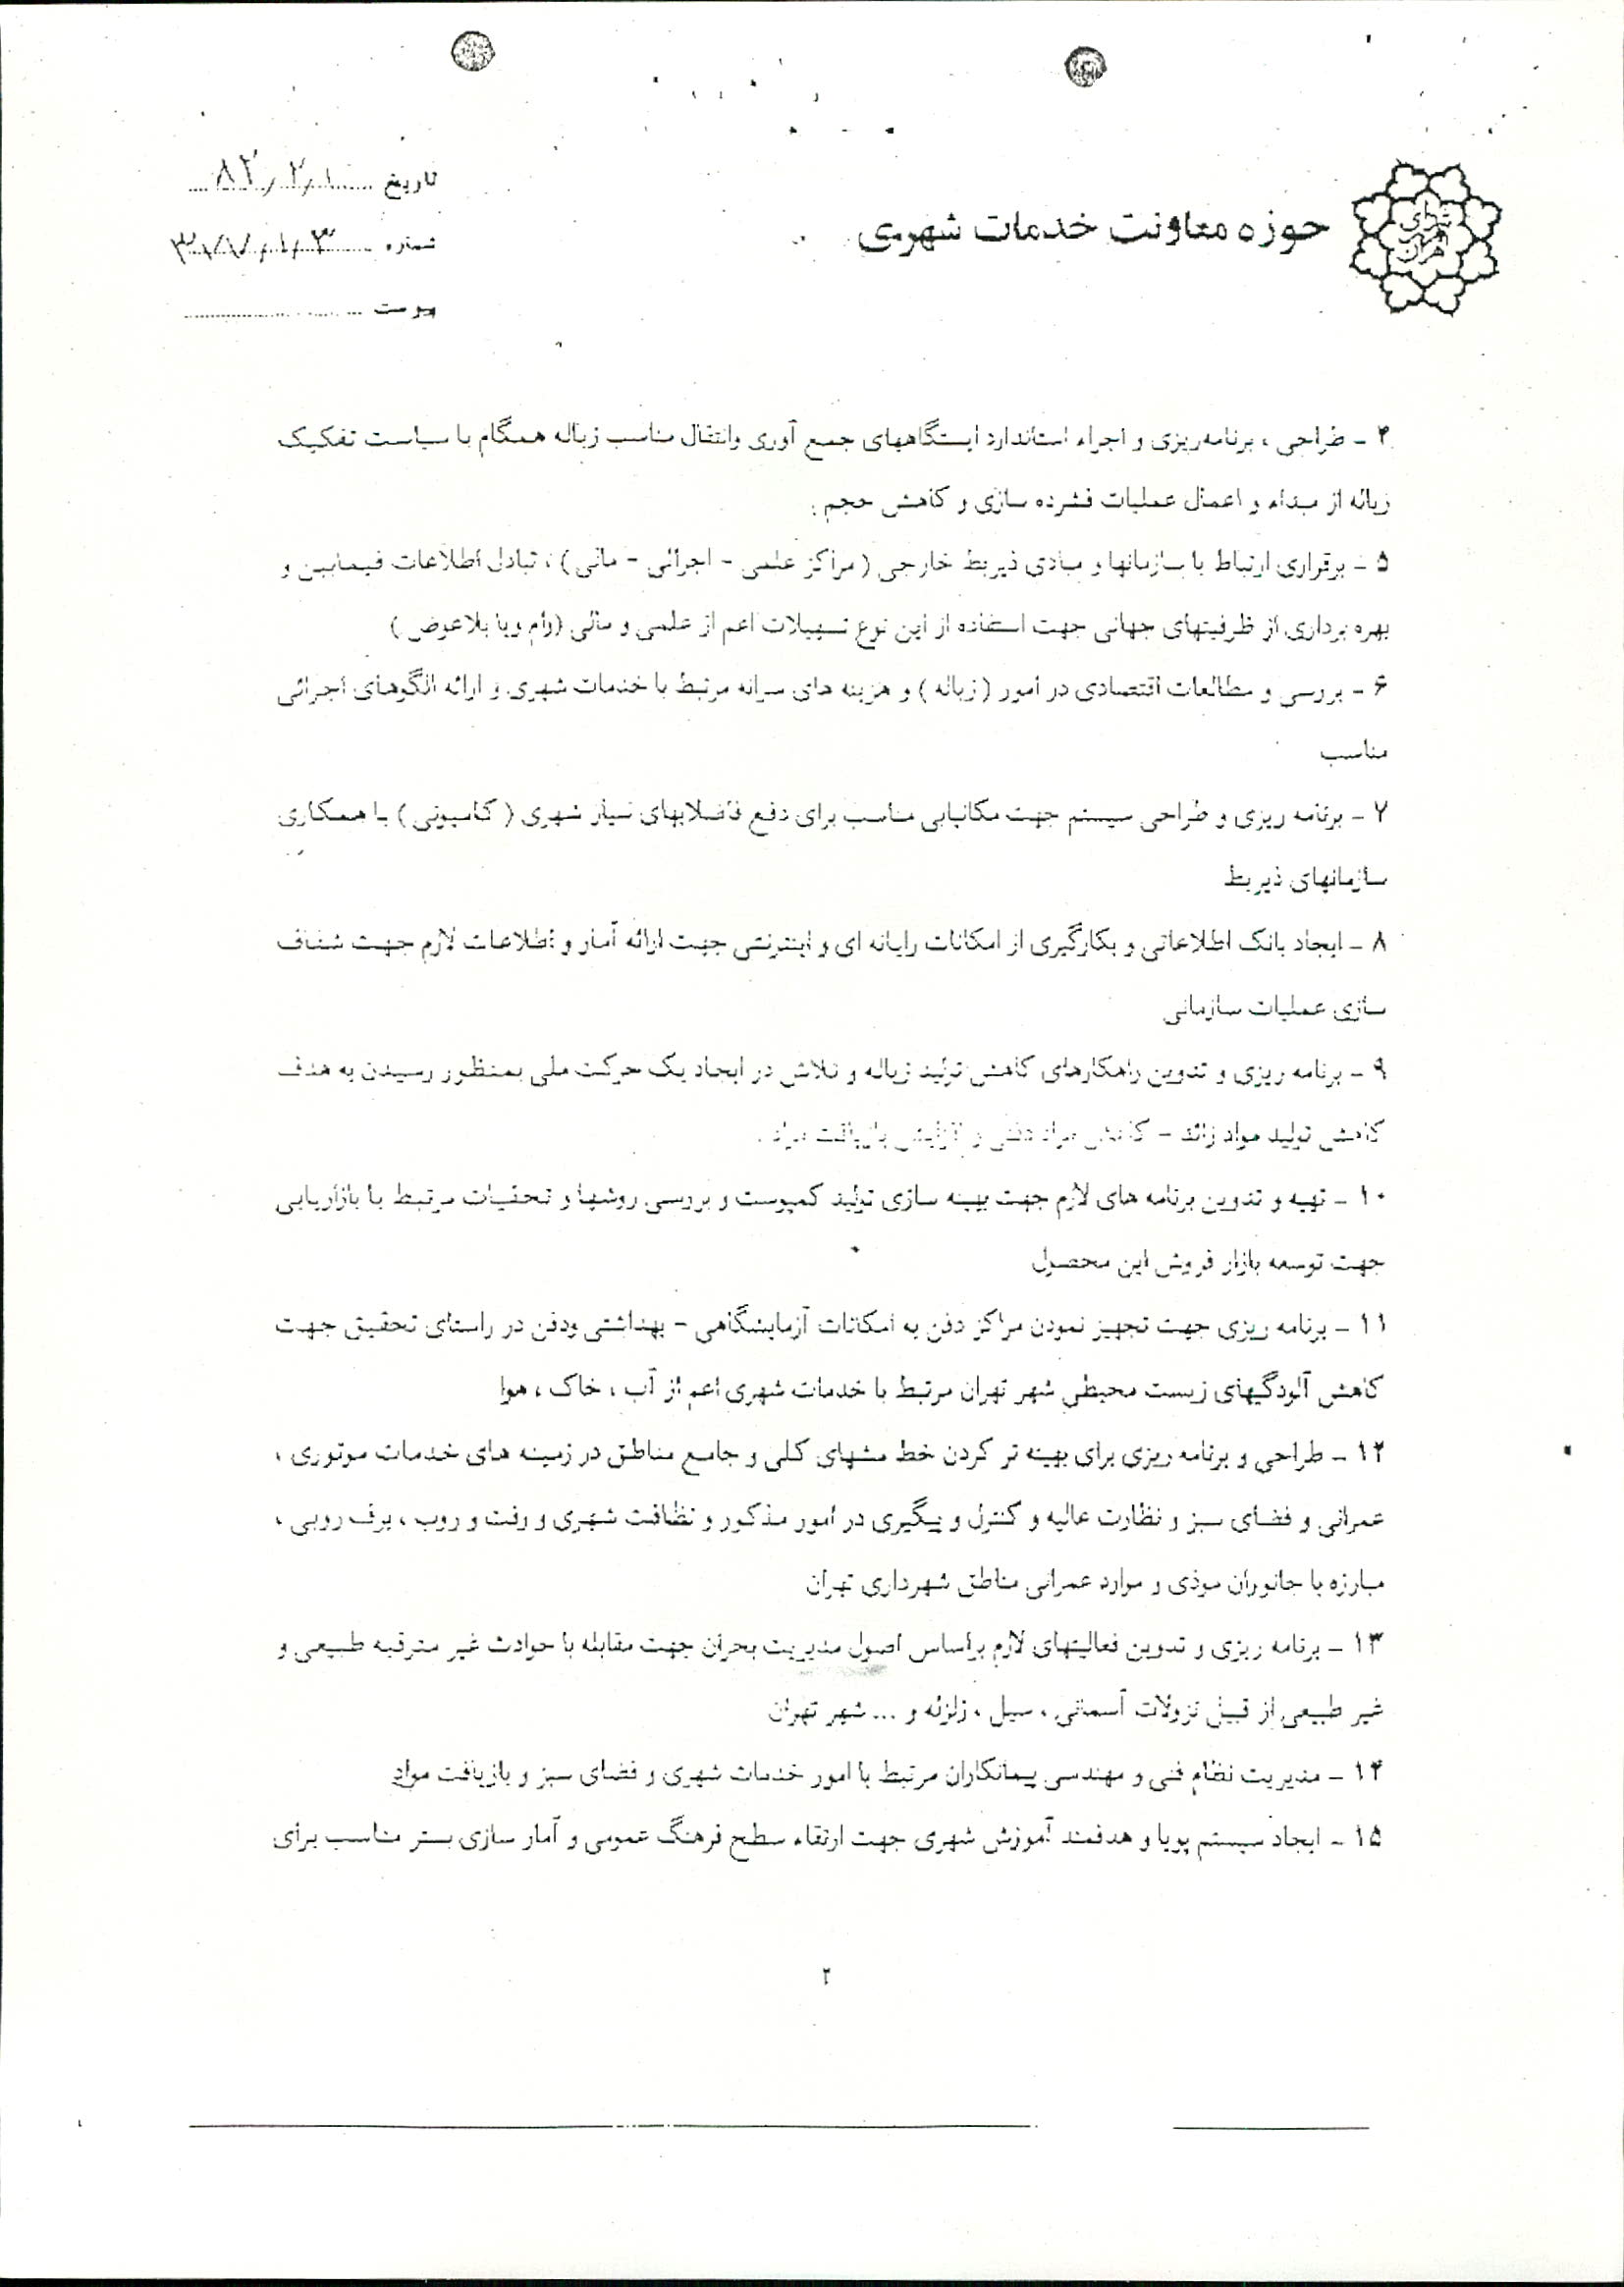 حوزه معاونت خدمات شهری
تاریخ
شماره
پیوست
۴ - طراحی ، برنامه‌ریزی و اجراء استاندارد ایستگاههای جمع آوری وانتقال مناسب زباله همگام با سیاست تفکیک
زباله از مبداء و اعمال عملیات فشرده سازی و کاهش حجم .
۵ - برقراری ارتباط با سازمانها و مبادی ذیربط خارجی ( مراکز علمی - اجرائی - مالی ) ، تبادل اطلاعات فیمابین و
بهره برداری از ظرفیتهای جهانی جهت استفاده از این نوع تسهیلات اعم از علمی و مالی (وام ویا بلاعوض )
۶ - بررسی و مطالعات اقتصادی در امور ( زباله ) و هزینه های سرانه مرتبط با خدمات شهری و ارائه الگوهای اجرائی
مناسب
۷ - برنامه ریزی و طراحی سیستم جهت مکانیابی مناسب برای دفع فاضلابهای سیار شهری ( کامیونی ) با همکاری
سازمانهای ذیربط
۸ - ایجاد بانک اطلاعاتی و بکارگیری از امکانات رایانه ای و اینترنتی جهت ارائه آمار و اطلاعات لازم جهت شفاف
سازی عملیات سازمانی
۹ - برنامه ریزی و تدوین راهکارهای کاهش تولید زباله و تلاش در ایجاد یک حرکت ملی بمنظور رسیدن به هدف
کاهش تولید مواد زائد - کاهش مواد دفنی و افزایش بازیافت مواد .
۱۰ - تهیه و تدوین برنامه های لازم جهت بهینه سازی تولید کمپوست و بررسی روشها و تحقیقات مرتبط با بازاریابی
جهت توسعه بازار فروش این محصول
۱۱ - برنامه ریزی جهت تجهیز نمودن مراکز دفن به امکانات آزمایشگاهی - بهداشتی ودفن در راستای تحقیق جهت
کاهش آلودگیهای زیست محیطی شهر تهران مرتبط با خدمات شهری اعم از آب ، خاک ، هوا
۱۲ - طراحی و برنامه ریزی برای بهینه تر کردن خط مشهای کلی و جامع مناطق در زمینه های خدمات موتوری ،
عمرانی و فضای سبز و نظارت عالیه و کنترل و پیگیری در امور مذکور و نظافت شهری و رفت و روب ، برف روبی ،
مبارزه با جانوران موذی و موارد عمرانی مناطق شهرداری تهران
۱۳ - برنامه ریزی و تدوین فعالیتهای لازم براساس اصول مدیریت بحران جهت مقابله با حوادث غیر مترقبه طبیعی و
غیر طبیعی از قبیل نزولات آسمانی ، سیل ، زلزله و ... شهر تهران
۱۴ - مدیریت نظام فنی و مهندسی پیمانکاران مرتبط با امور خدمات شهری و فضای سبز و بازیافت مواد
۱۵ - ایجاد سیستم پویا و هدفمند آموزش شهری جهت ارتقاء سطح فرهنگ عمومی و آمار سازی بستر مناسب برای
۲